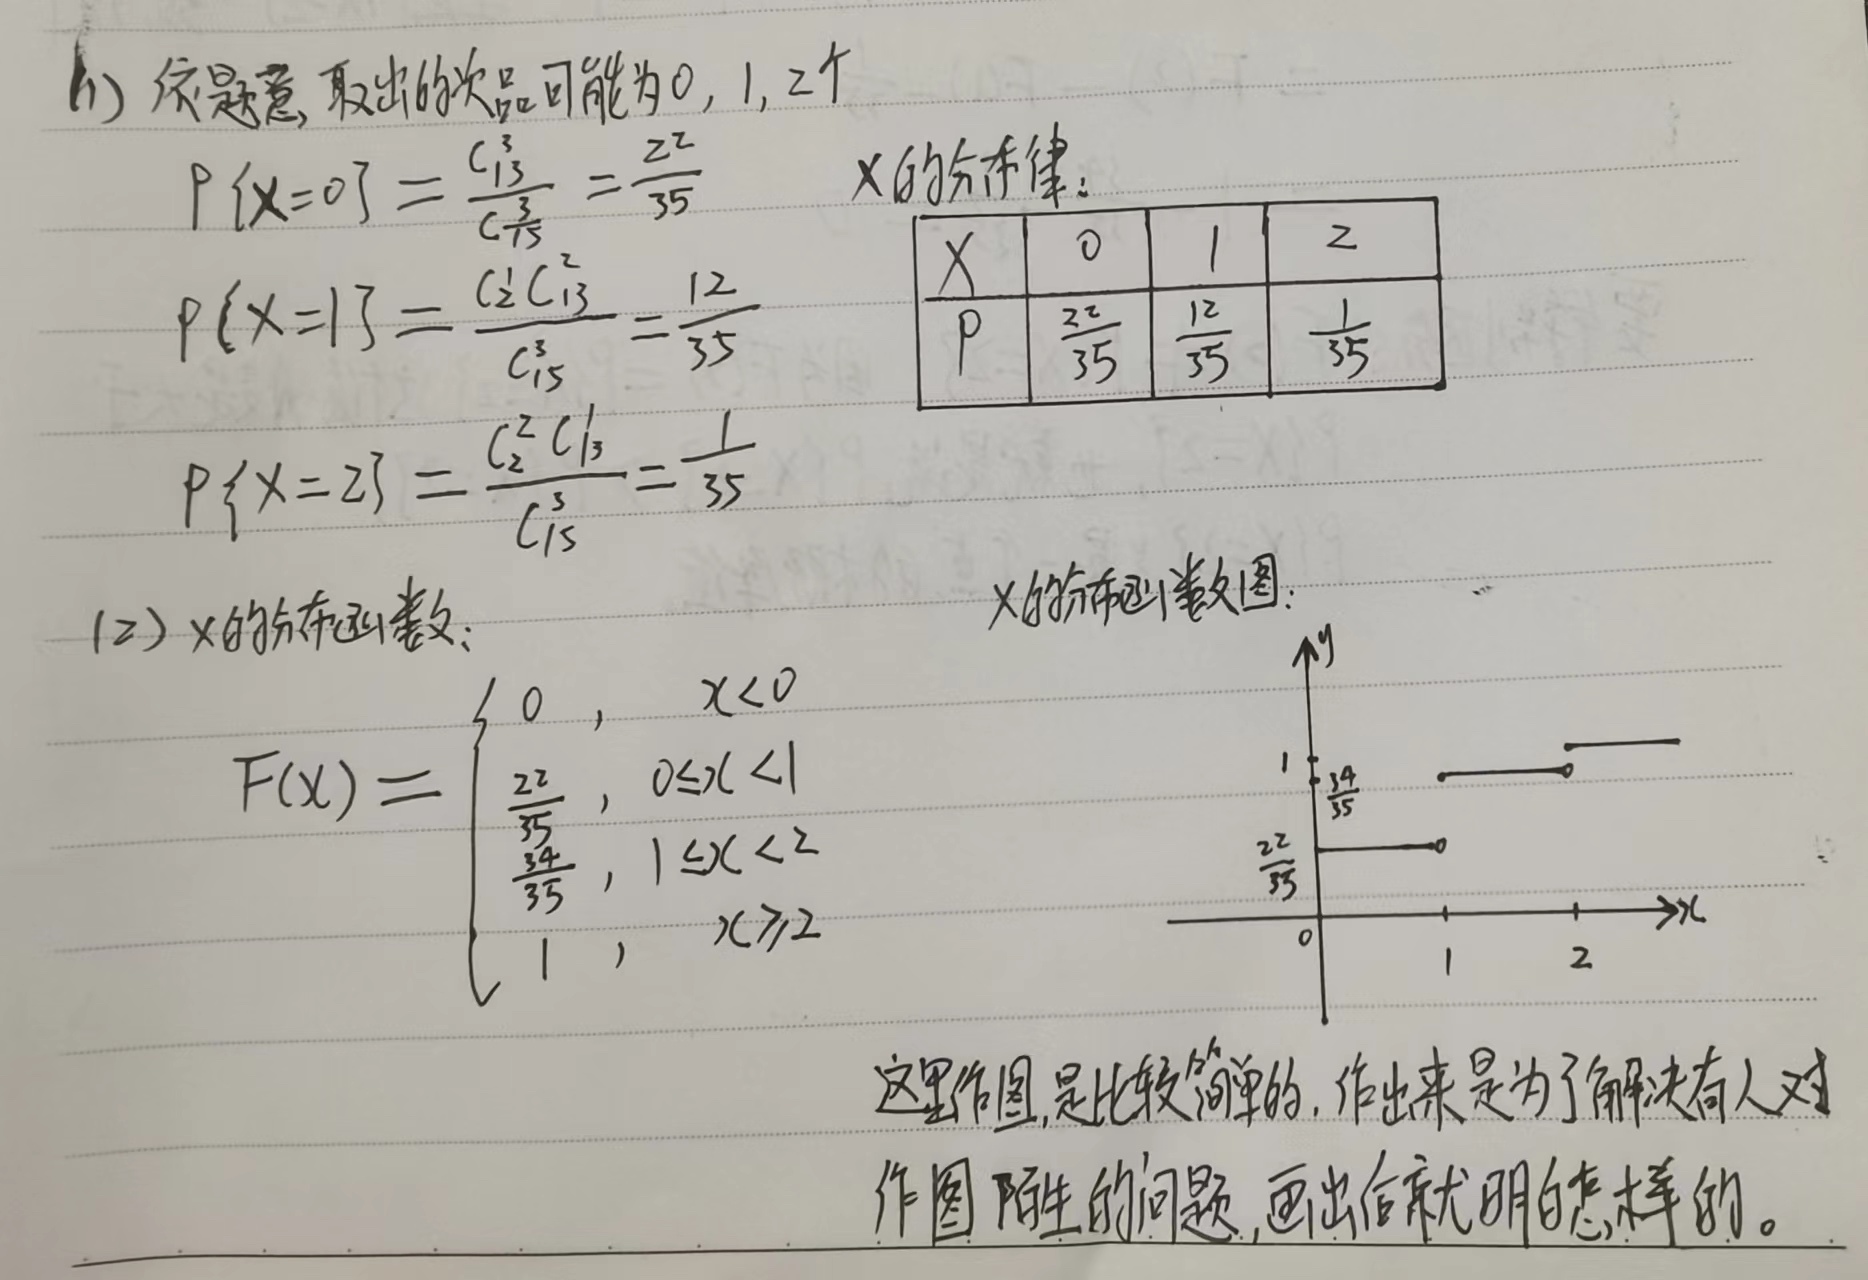 (1) 依题意,取出的次品可能为0,1,2个
P{X=0} = C₁₃³/C₁₅³ = 22/35
P{X=1} = C₂¹C₁₃²/C₁₅³ = 12/35
P{X=2} = C₂²C₁₃¹/C₁₅³ = 1/35
X的分布律:
X 0 1 2
P 22/35 12/35 1/35
(2) X的分布函数:
F(x) = {
0 , x<0
22/35 , 0≤x<1
34/35 , 1≤x<2
1 , x≥2
X的分布函数图:
y
1
34/35
22/35
0 1 2 x
这里作图,是比较简单的,作出来是为了解决有人对
作图陌生的问题,画出后就明白怎样的。